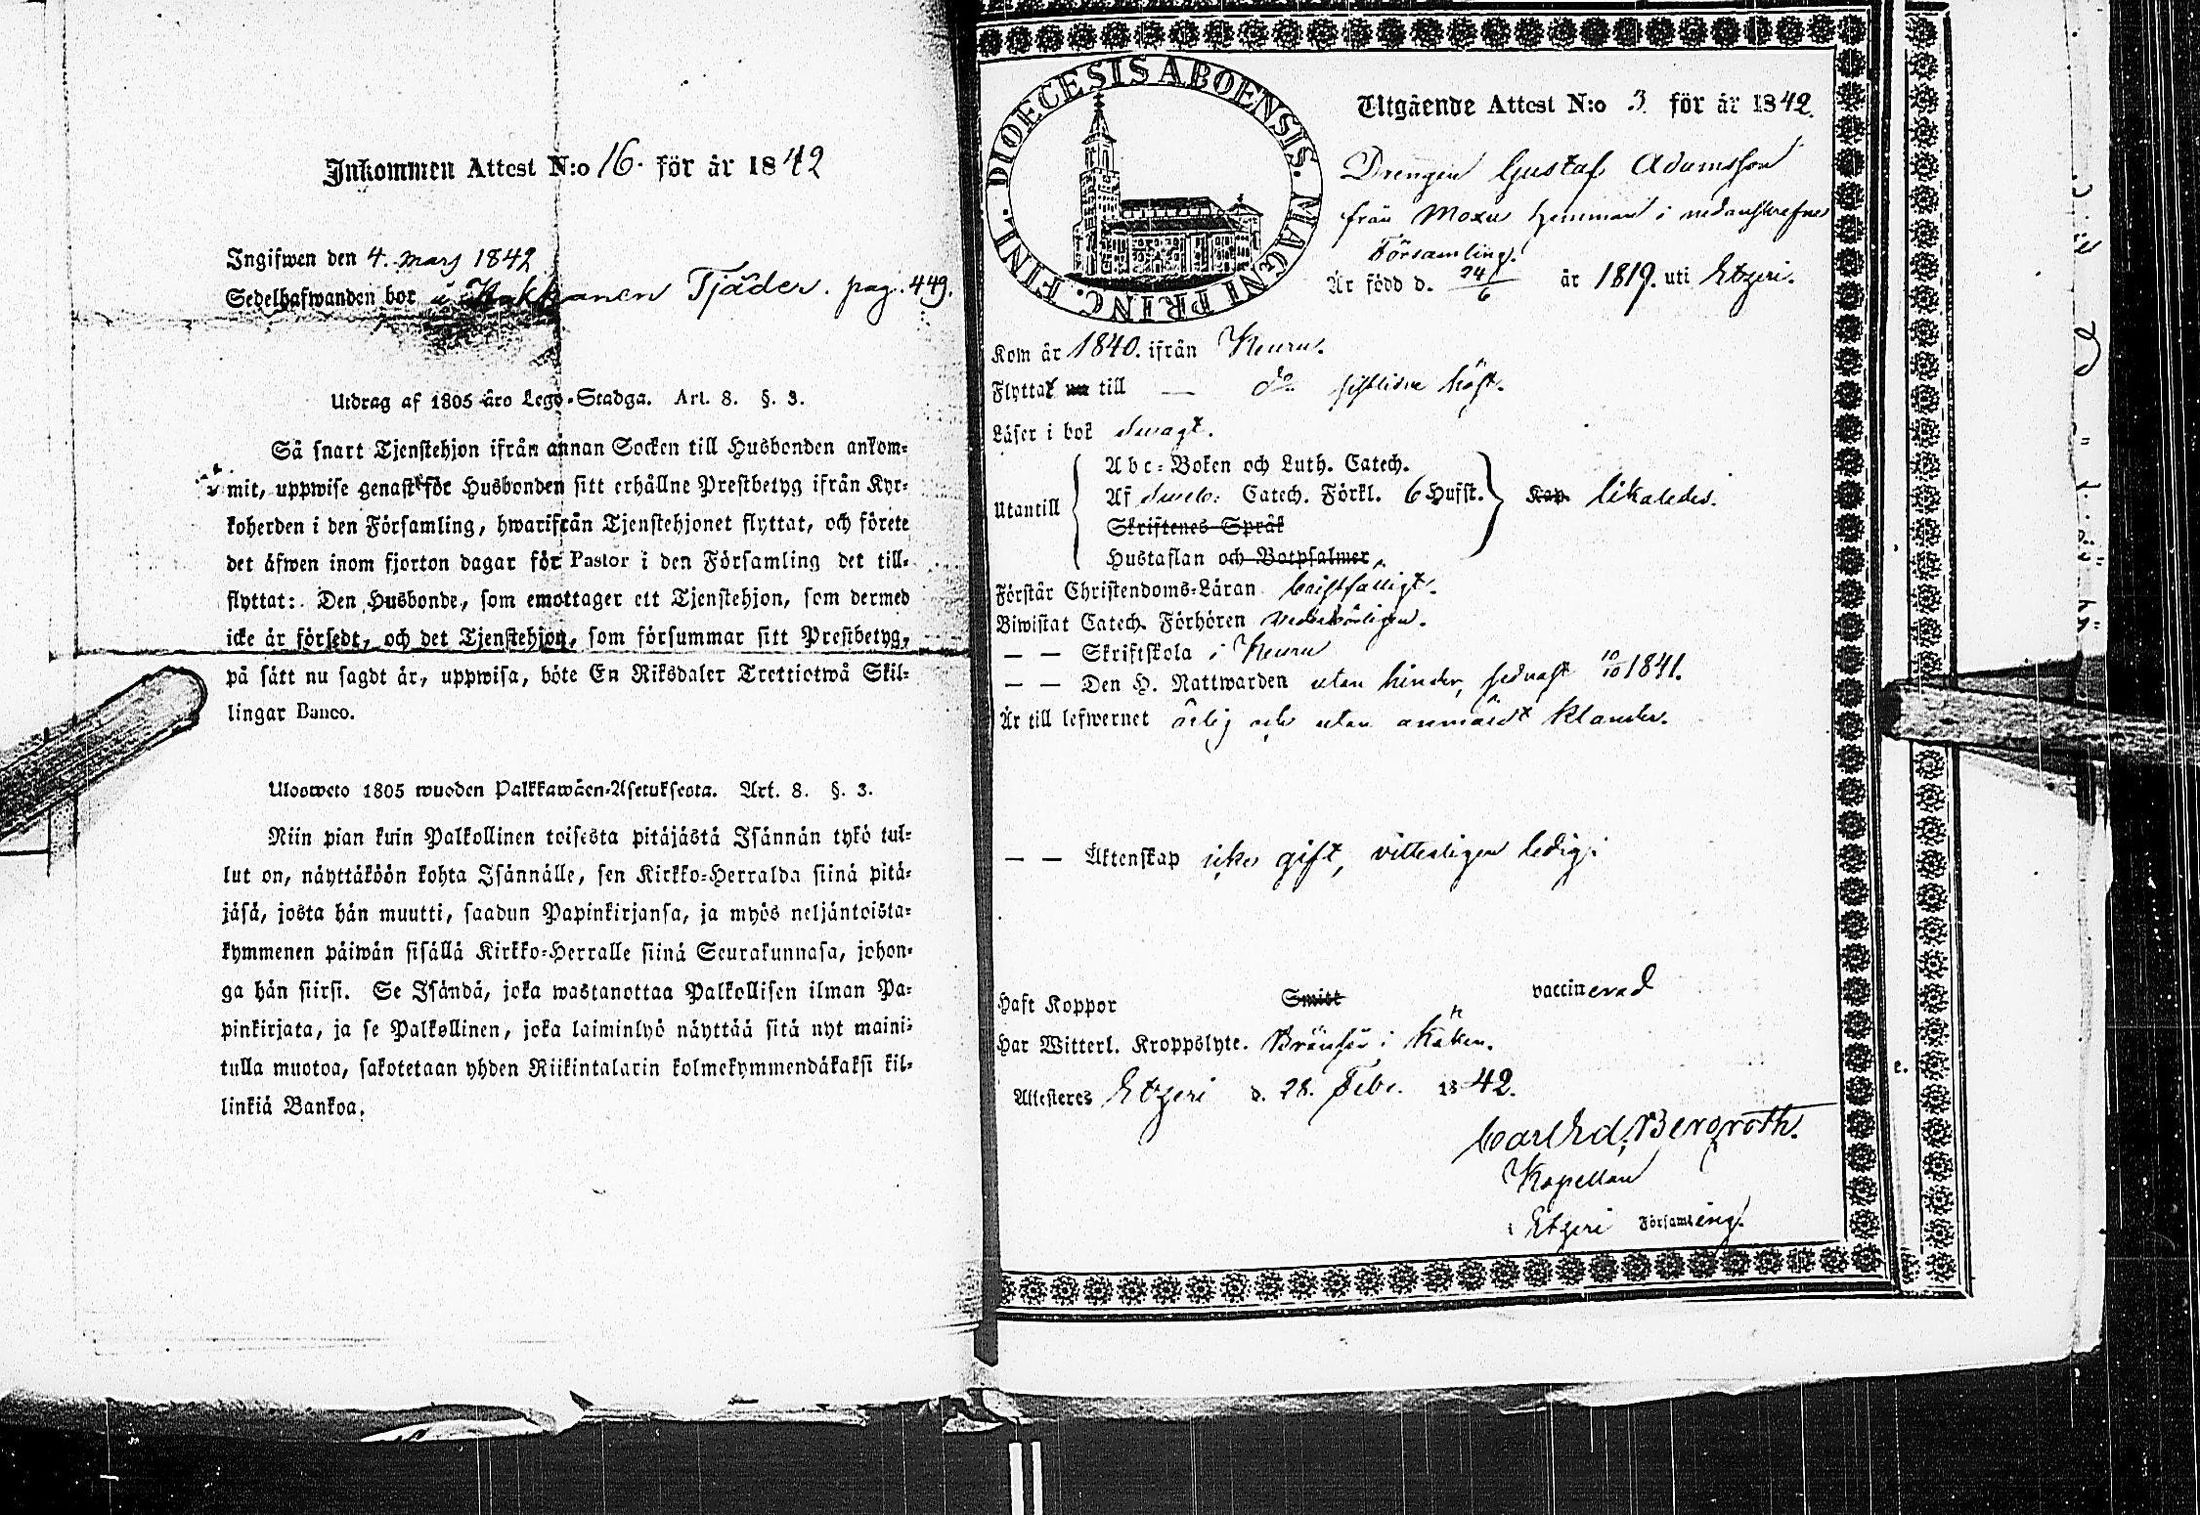 Inkommen Attest N:o 16. för år 1842
Ingifwen den 4. mars 1842
Sedelhafwanden bor i Hakkanen Tjäder. pag. 449.
Utdrag af 1805 års Lego-Stadga. Art. 8. §. 3.
Så snart Tjenstehjon ifrån annan Socken till Husbonden ankom-
mit, uppwise genast för Husbonden sitt erhållne Prestbetyg ifrån Kyr-
koherden i den Församling, hwarifrån Tjenstehjonet flyttat, och förete
det äfwen inom fjorton dagar för Pastor i den Församling det till-
flyttat: Den Husbonde, som emottager ett Tjenstehjon, som dermed
icke är försedt, och det Tjenstehjon, som försummar sitt Prestbetyg,
på sätt nu sagdt är, uppwisa, böte En Riksdaler Trettiotwå Skil-
lingar Banco.
Uloosweto 1805 wuoden Palkkawäen-Asetuksesta. Art. 8. §. 3.
Niin pian kuin Palkollinen toisesta pitäjästä Isännän tykö tul-
lut on, näyttäköön kohta Isännälle, sen Kirkko-Herralda siinä pitä-
jäsä, josta hän muutti, saadun Papinkirjansa, ja myös neljäntoista-
kymmenen päiwän sisällä Kirkko-Herralle siinä Seurakunnasa, johon-
ga hän siirsi. Se Isändä, joka wastanottaa Palkollisen ilman Pa-
pinkirjata, ja se Palkollinen, joka laiminlyö näyttää sitä nyt maini-
tulla muotoa, sakotetaan yhden Riikintalarin kolmekymmendäkaksi kil-
linkiä Bankoa.
DIOECESIS ABOENSIS. MAGNI PRINC. FINL.
Utgående Attest N:o 3 för år 1842.
Drengen Gustaf Adamsson
från Moxu hemman i nedanskrefne
Församling.
Är född d. 24/6 år 1819. uti Etzeri.
Kom år 1840. ifrån Keuru.
Flyttat nu till — do sistlidne höst.
Läser i bok swagt.
Abc-Boken och Luth. Catech.
Utantill Af Swebe: Catech. Förkl. 6 Hufst. Kap. likaledes.
Skriftenes Språk
Hustaflan och Botpsalmer
Förstår Christendoms-Läran bristfälligt.
Biwistat Catech. Förhören vederbörligen.
— — Skriftskola i Keuru
— — Den H. Nattwarden utan hinder, sednast 10/10 1841.
Är till lefwernet ärlig och utan anmärkt klander.
— — Äktenskap icke gift, vitterligen ledig.
Haft Koppor Smitt vaccinerad
Har Witterl. Kroppslyte. Bränsår i Hakan.
Attesteres Etzeri d. 28. Febr. 1842.
Carl Ed. Bergroth.
Kapellan
i Etzeri Församling.